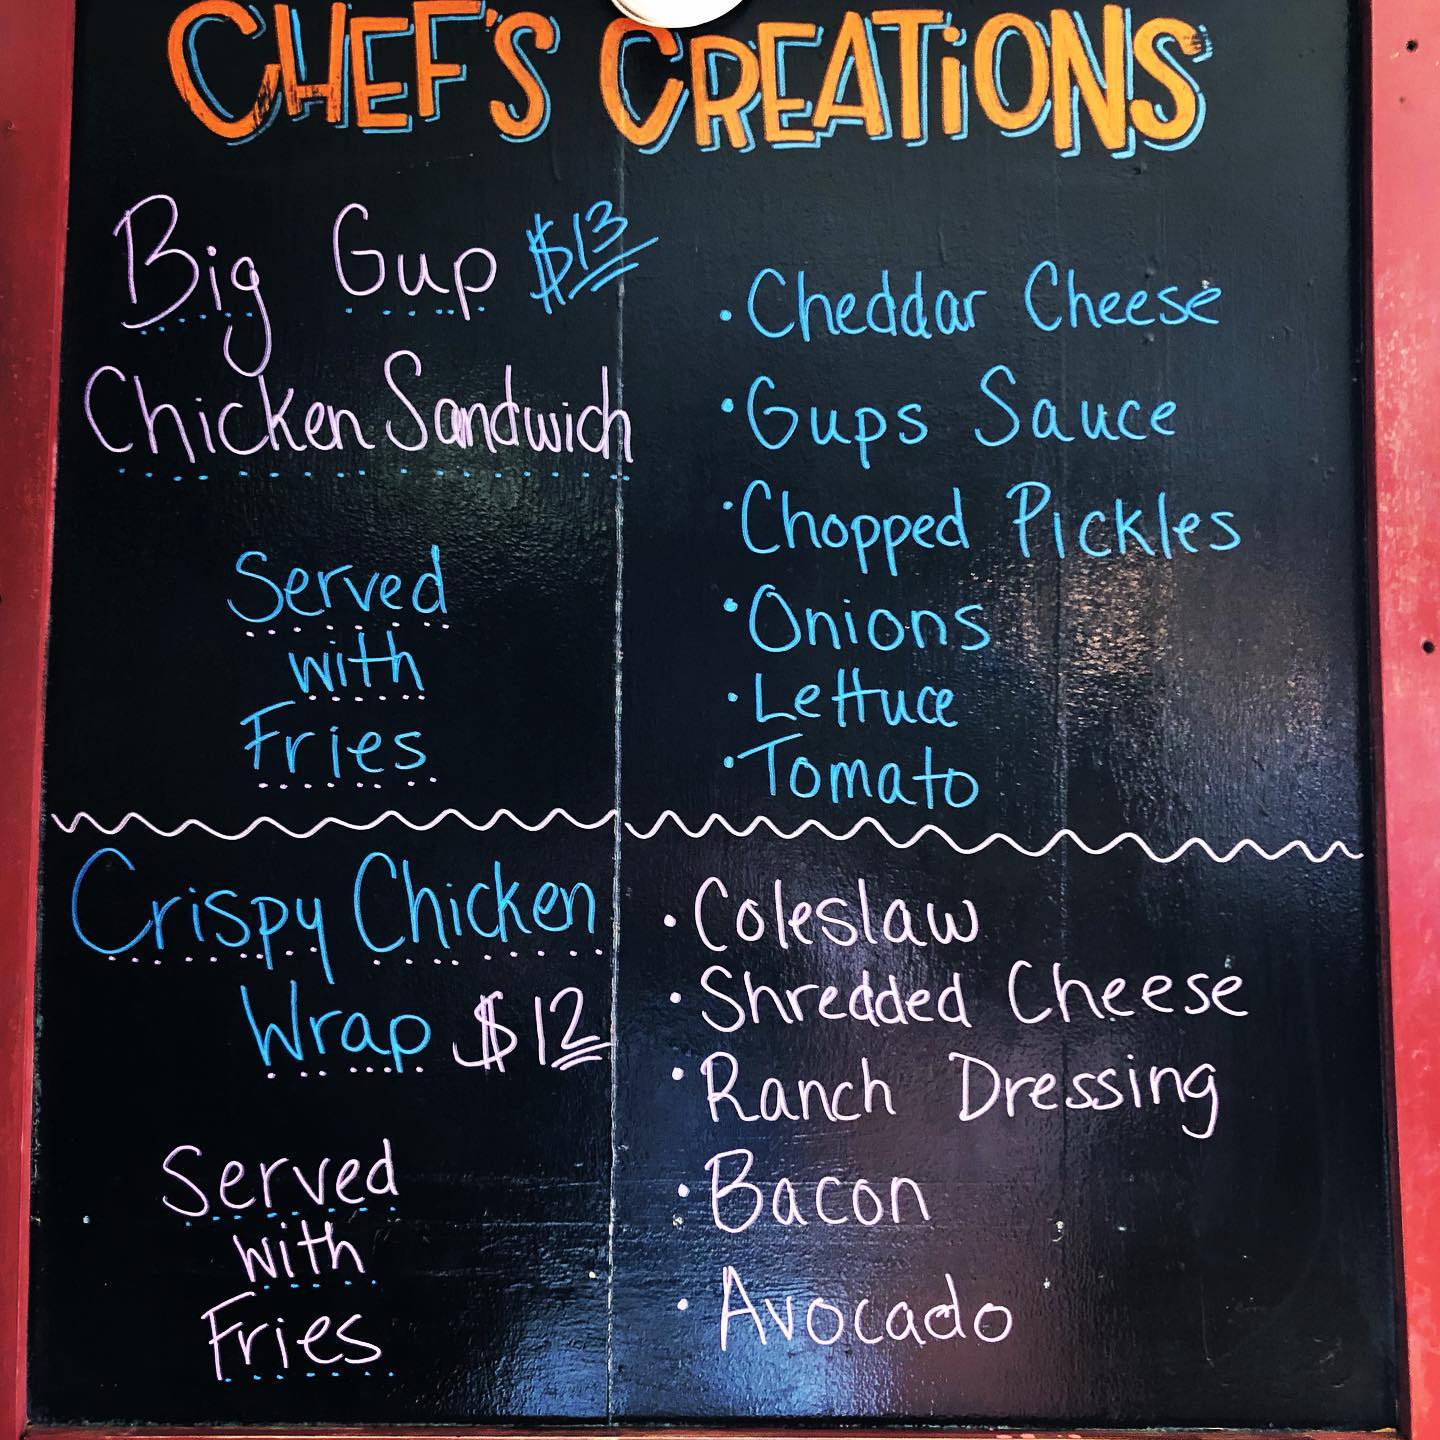 CHEF'S CREATIONS
Big Gup $13
Chicken Sandwich
Served
with
Fries
• Cheddar Cheese
• Gups Sauce
• Chopped Pickles
• Onions
• Lettuce
• Tomato
Crispy Chicken
Wrap $12
Served
with
Fries
• Coleslaw
• Shredded Cheese
• Ranch Dressing
• Bacon
• Avocado